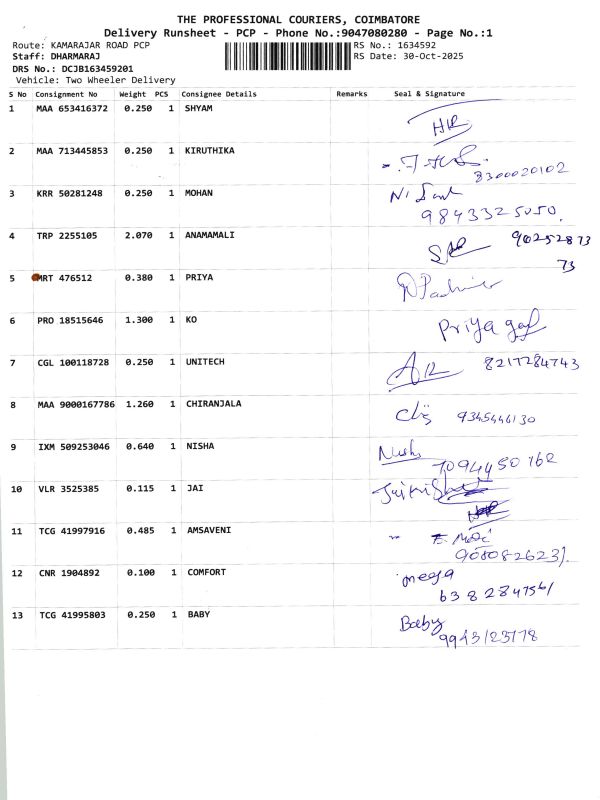 THE PROFESSIONAL COURIERS, COIMBATORE
Delivery Runsheet - PCP - Phone No.:9047080280 - Page No.:1
Route: KAMARAJAR ROAD PCP RS No.: 1634592
Staff: DHARMARAJ RS Date: 30-Oct-2025
DRS No.: DCJB163459201
Vehicle: Two Wheeler Delivery
S No Consignment No Weight PCS Consignee Details Remarks Seal & Signature
1 MAA 653416372 0.250 1 SHYAM
2 MAA 713445853 0.250 1 KIRUTHIKA
8300020102
3 KRR 50281248 0.250 1 MOHAN
9843325050.
4 TRP 2255105 2.070 1 ANAMAMALI
90252873
73
5 MRT 476512 0.380 1 PRIYA
6 PRO 18515646 1.300 1 KO
Priya
7 CGL 100118728 0.250 1 UNITECH
8217284743
8 MAA 9000167786 1.260 1 CHIRANJALA
9345446130
9 IXM 509253046 0.640 1 NISHA
7094450762
10 VLR 3525385 0.115 1 JAI
11 TCG 41997916 0.485 1 AMSAVENI
12 CNR 1904892 0.100 1 COMFORT
mega
6382847561
13 TCG 41995803 0.250 1 BABY
Baby
9943123178